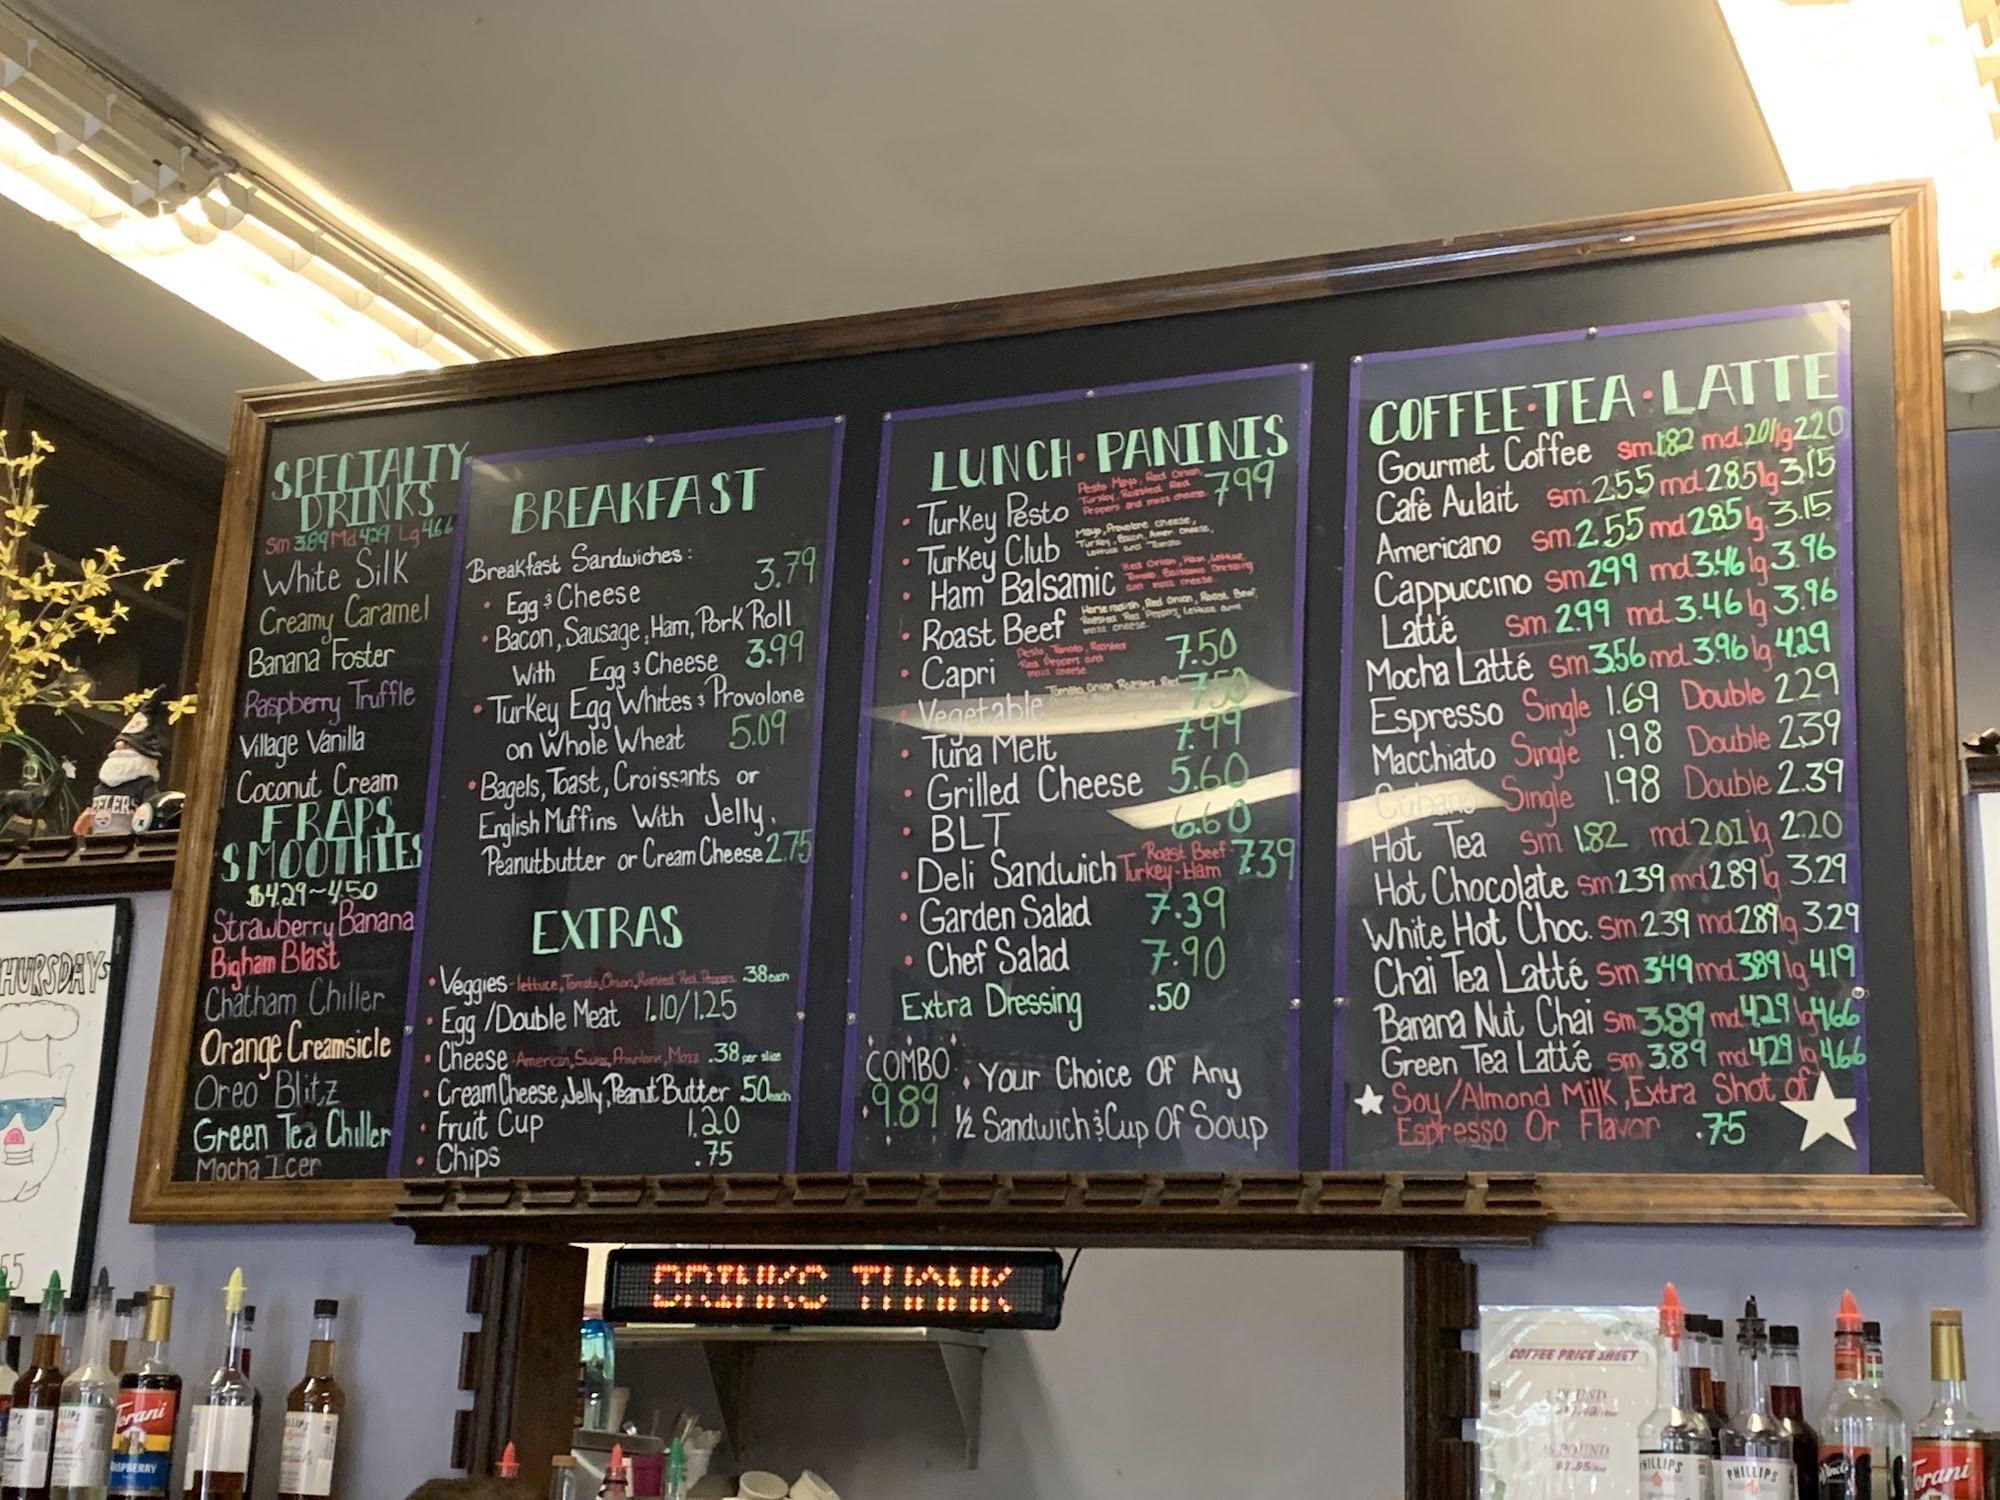 SPECIALTY
DRINKS
Sm 3.89 Md 4.29 Lg 4.66
White Silk
Creamy Caramel
Banana Foster
Raspberry Truffle
Village Vanilla
Coconut Cream
FRAPS
SMOOTHIES
$4.29~4.50
Strawberry Banana
Bigham Blast
Chatham Chiller
Orange Creamsicle
Oreo Blitz
Green Tea Chiller
Mocha Icer
BREAKFAST
Breakfast Sandwiches:
• Egg & Cheese 3.79
• Bacon, Sausage, Ham, Pork Roll
With Egg & Cheese 3.99
• Turkey Egg Whites & Provolone
on Whole Wheat 5.09
• Bagels, Toast, Croissants or
English Muffins With Jelly,
Peanutbutter or Cream Cheese 2.75
EXTRAS
• Veggies - lettuce, Tomato, Onion, Roasted Red Peppers .38 each
• Egg / Double Meat 1.10/1.25
• Cheese - American, Swiss, Provolone, Mozz .38 per slice
• Cream Cheese, Jelly, Peanut Butter .50 each
• Fruit Cup 1.20
• Chips .75
LUNCH • PANINIS
• Turkey Pesto Pesto Mayo, Red Onion, 7.99
Turkey, Roasted Red
Peppers and mozz cheese
• Turkey Club Mayo, Provolone cheese,
Turkey, Bacon, Amer. cheese,
Lettuce and Tomato
• Ham Balsamic Red Onion, Ham, Lettuce,
Tomato, Balsamic Dressing
and mozz cheese
• Roast Beef Horseradish, Red Onion, Roast Beef,
Roasted Red Peppers, Lettuce and
mozz cheese
• Capri Pesto, Tomato, Roasted 7.50
Red Peppers and
mozz cheese
• Vegetable Tomato, Onion, Roasted Red 7.50
• Tuna Melt 7.99
• Grilled Cheese 5.60
• BLT 6.60
• Deli Sandwich Roast Beef- 7.39
Turkey-Ham
• Garden Salad 7.39
• Chef Salad 7.90
Extra Dressing .50
COMBO
9.89
Your Choice Of Any
½ Sandwich & Cup Of Soup
COFFEE • TEA • LATTE
Gourmet Coffee sm. 1.82 md. 2.01 lg 2.20
Café Aulait sm. 2.55 md. 2.85 lg 3.15
Americano sm. 2.55 md. 2.85 lg. 3.15
Cappuccino sm 2.99 md. 3.46 lg. 3.96
Latté sm. 2.99 md. 3.46 lg 3.96
Mocha Latté sm 3.56 md. 3.96 lg 4.29
Espresso Single 1.69 Double 2.29
Macchiato Single 1.98 Double 2.39
Cubano Single 1.98 Double 2.39
Hot Tea sm 1.82 md 2.01 lg 2.20
Hot Chocolate sm 2.39 md 2.89 lg 3.29
White Hot Choc. sm 2.39 md 2.89 lg 3.29
Chai Tea Latté sm 3.49 md 3.89 lg 4.19
Banana Nut Chai sm 3.89 md 4.29 lg 4.66
Green Tea Latté sm 3.89 md 4.29 lg 4.66
Soy/Almond Milk, Extra Shot of
Espresso Or Flavor .75
HURSDAYS
DRINKS THANK
COFFEE PRICE SHEET
POUND
POUND
Torani
RASPBERRY
PHILLIPS
PHILLIPS
Torani